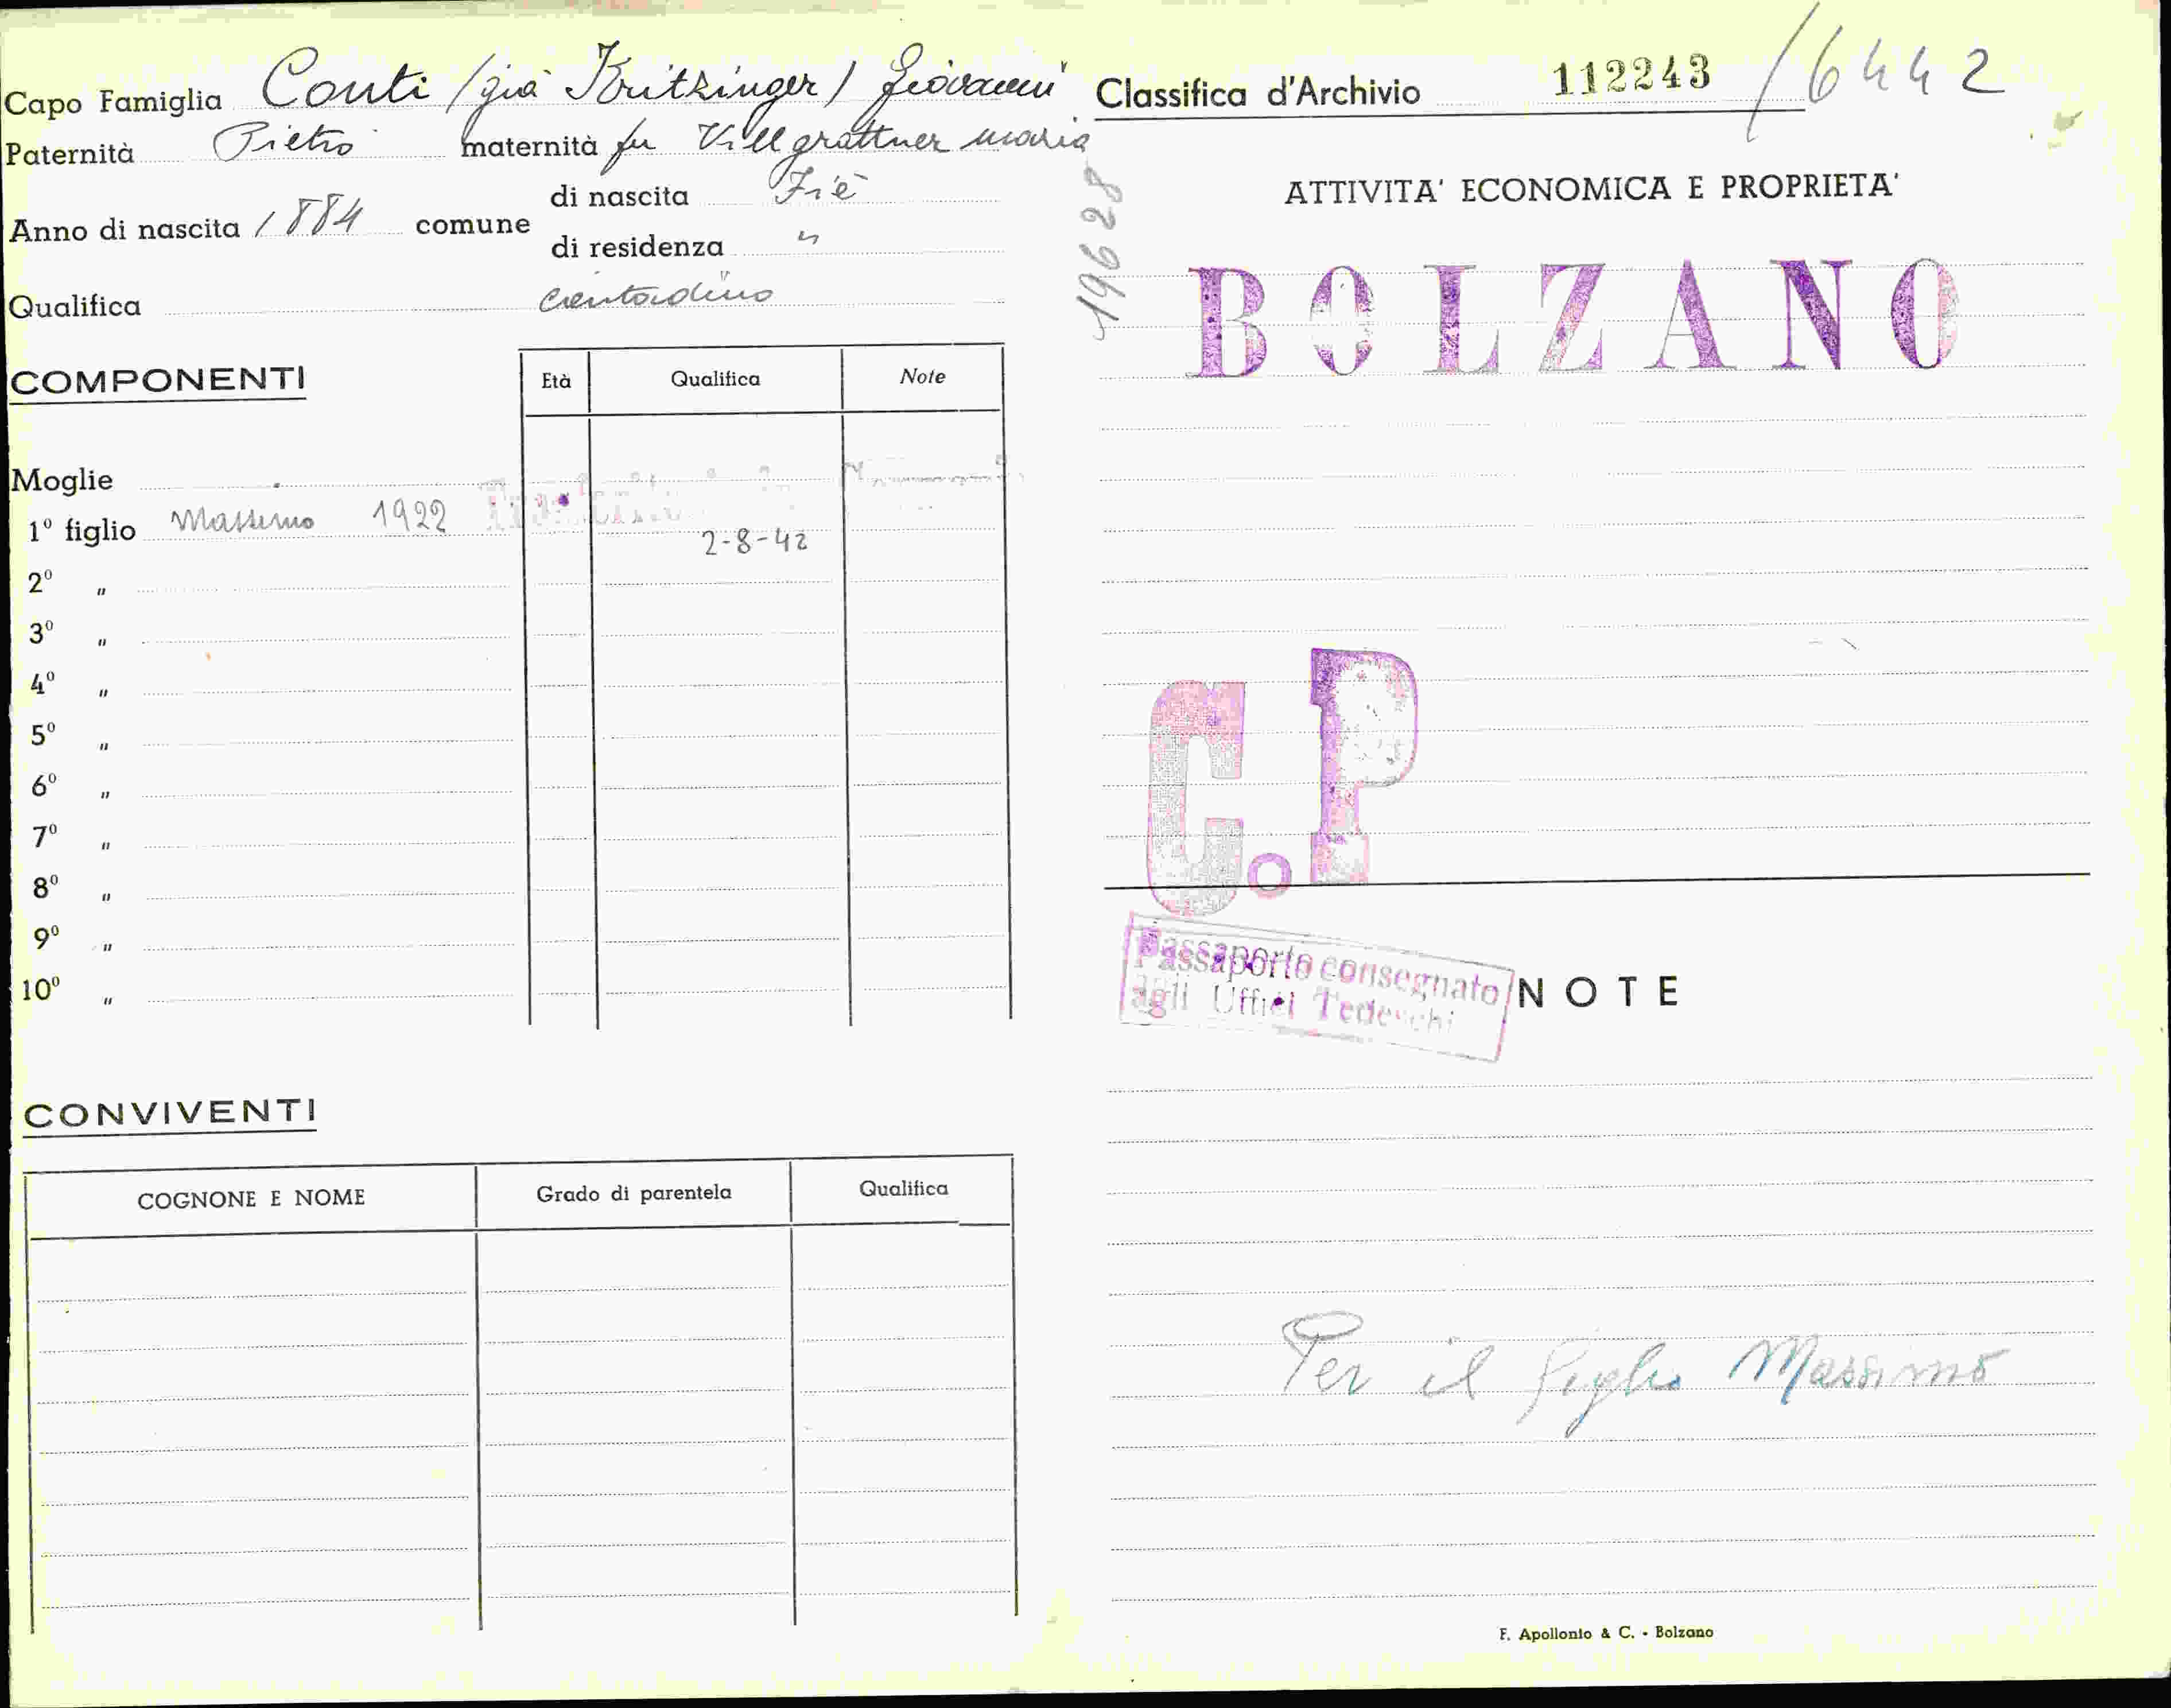 Capo Famiglia Conti /già Kritzinger/ Giovanni
Paternità Pietro maternità fu Villgrattner Maria
Anno di nascita 1884 comune di nascita Fiè
di residenza "
Qualifica contadino
COMPONENTI
Età Qualifica Note
Moglie
1º figlio Massimo 1922
2-8-42
2º "
3º "
4º "
5º "
6º "
7º "
8º "
9º "
10º "
CONVIVENTI
COGNONE E NOME Grado di parentela Qualifica
Classifica d'Archivio 112243 /6442
19628
ATTIVITA' ECONOMICA E PROPRIETA'
BOLZANO
C.P
Passaporto consegnato
agli Uffici Tedeschi
NOTE
Per il figlio Massimo
F. Apollonio & C. - Bolzano